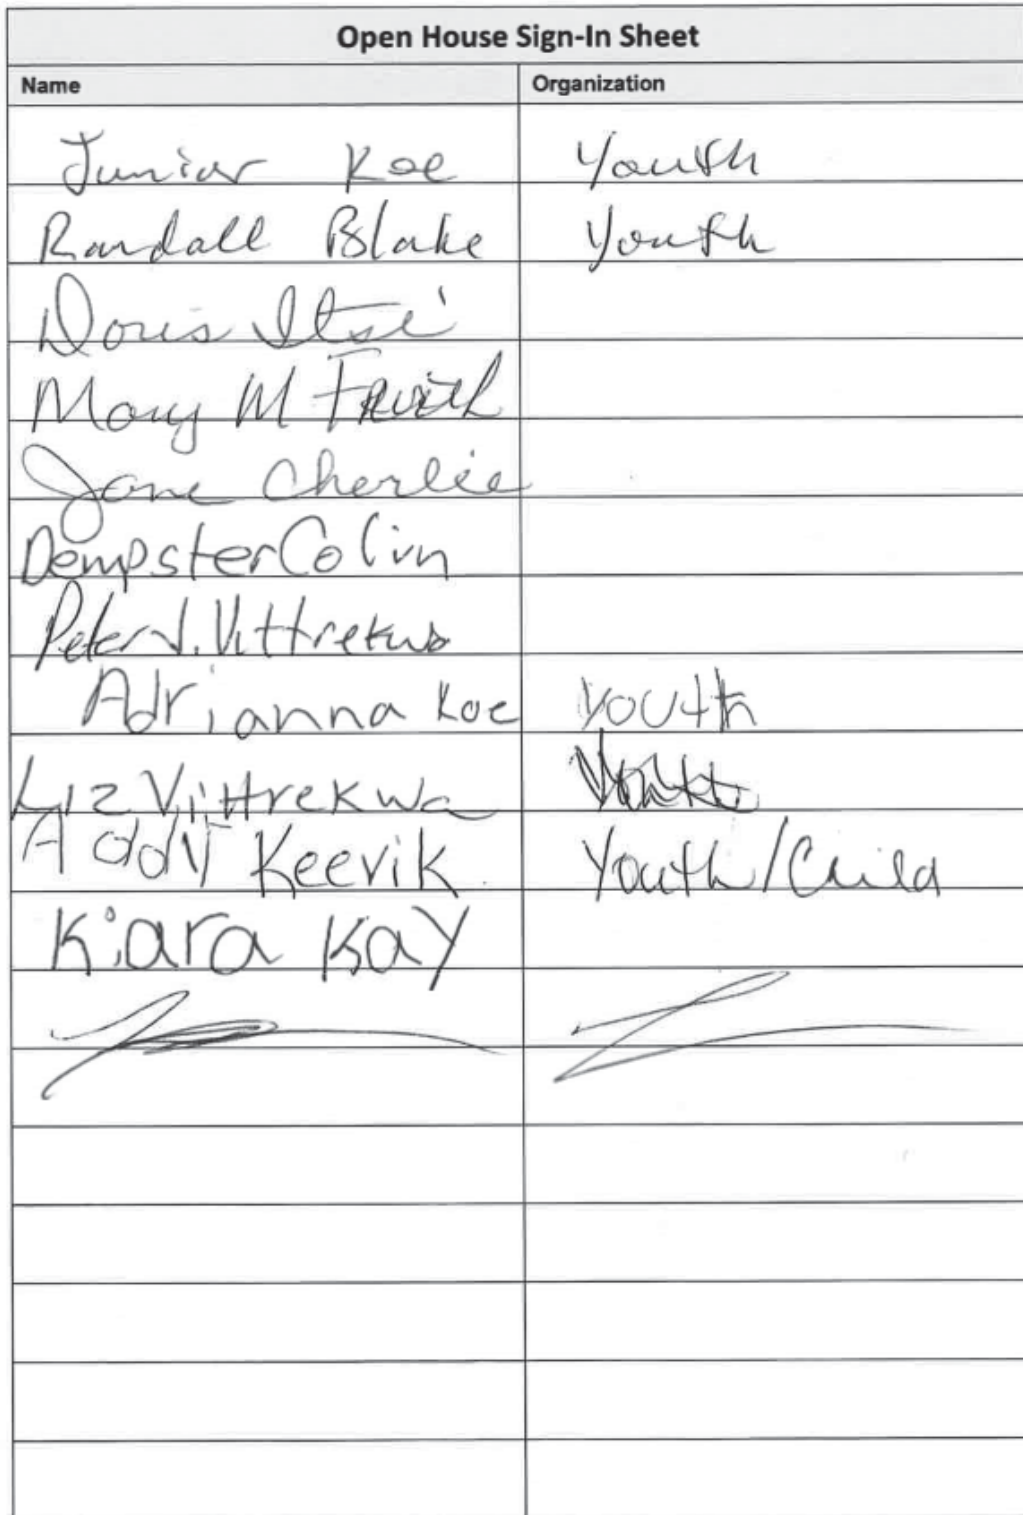 Open House Sign-In Sheet
Name Organization
Junior Koe Youth
Randall Blake Youth
Doris Itsi
Mary M
Jane Cherlie
Dempster Colin
Peter J. Vittrekwa
Adrianna Koe Youth
Liz Vittrekwa
Addy Keevik Youth/Child
Kiara Kay